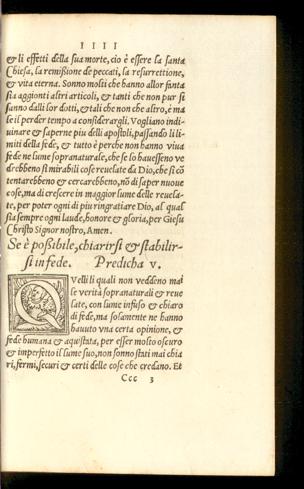 I I I I
& li effetti della sua morte, cio è essere la santa
Chiesa, la remißione de peccati, la resurrettione,
& vita eterna. Sonno molti che hanno allor fanta
sia aggionti altri articoli, & tanti che non pur si
sanno dalli lor dotti, & tali che non che altro, è ma
le il perder tempo a considerargli. Vogliano indi-
uinare & saperne piu delli apostoli, passando li li-
miti della fede, & tutto è perche non hanno viua
fede ne lume sopranaturale, che se lo hauesseno ve
drebbeno si mirabili cose reuelate da Dio, che si cō
tentarebbeno & cercarebbeno, nō di saper nuoue
cose, ma di crescere in maggior lume delle reuela-
te, per poter ogni di piu ringratiare Dio, al qual
sia sempre ogni laude, honore & gloria, per Giesu
Christo Signor nostro, Amen.
Se è poßibile, chiarirsi & stabilir-
si in fede. Predicha v.
QVelli li quali non veddeno mai
le verità sopranaturali & reue
late, con lume infuso & chiaro
di fede, ma solamente ne hanno
hauuto vna certa opinione, &
fede humana & aquistata, per esser molto oscuro
& imperfetto il lume suo, non sonno stati mai chia
ri, fermi, securi & certi delle cose che credano. Et
Ccc 3